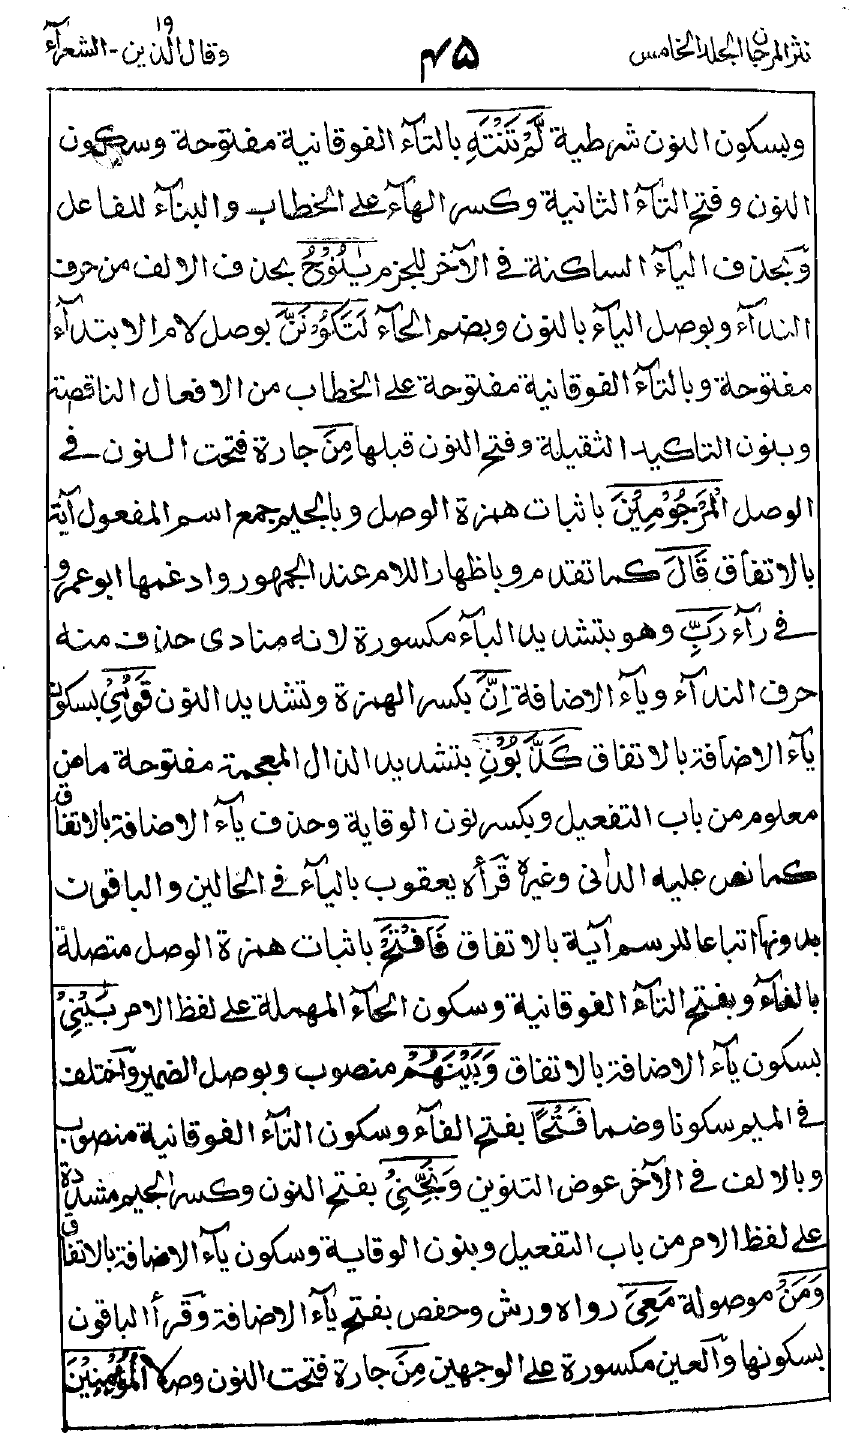 نثر المرجان الجلد الخامس
۴۵
وقال الذين ١٩ - الشعرآء
وبسكون النون شرطية لَّمْ تَنْتَهِ بالتآء الفوقانية مفتوحة وسكون
النون وفتح التآء الثانية وكسر الهآء على الخطاب والبنآء للفاعل
وَّبحذف اليآء الساكنة في الآخر للجزم يٰنُوْحُ بحذف الالف من حرف
الندآء وبوصل اليآء بالنون وبضم الحآء لَتَكُوْنَنَّ بوصل لام الابتدآء
مفتوحة وبالتآء الفوقانية مفتوحة على الخطاب من الافعال الناقصة
وبنون التاكيد الثقيلة وفتح النون قبلها مِنَ جارة فتحت النون في
الوصل الْمَرْجُوْمِيْنَ باثبات همزة الوصل وبالجيم جمع اسم المفعول آية
بالاتفاق قَالَ كما تقدم وباظهار اللام عند الجمهور وادغمها ابو عمرو
في رآء رَبِّ وهو بتشديد البآء مكسورة لانه منادى حذف منه
حرف الندآء ويآء الاضافة اِنَّ بكسر الهمزة وتشديد النون قَوْمِيْ بسكون
يآء الاضافة بالاتفاق كَذَّبُوْنِ بتشديد الذال المعجمة مفتوحة ماض
معلوم من باب التفعيل وبكسر نون الوقاية وحذف يآء الاضافة بالاتفاق
كما نص عليه الدانى وغيره قرأه يعقوب باليآء في الحالين والباقون
بدونها اتباعا للرسم آية بالاتفاق فَافْتَحْ باثبات همزة الوصل متصلة
بالفآء وبفتح التآء الفوقانية وسكون الحآء المهملة على لفظ الامر بَيْنِيْ
بسكون يآء الاضافة بالاتفاق وَبَيْنَهُمْ منصوب وبوصل الضمير وٓاختلف
في الميم سكونا وضما فَتْحًا بفتح الفآء وسكون التآء الفوقانية منصوب
وبالالف في الآخر عوض التنوين وَنَجِّنِيْ بفتح النون وكسر الجيم مشددة
على لفظ الامر من باب التفعيل وبنون الوقاية وسكون يآء الاضافة بالاتفاق
وَمَنْ موصولة مَعِيَ رواه ورش وحفص بفتح يآء الاضافة وقرأ الباقون
بسكونها وٓالعين مكسورة على الوجهين مِنَ جارة فتحت النون وصلا الْمُؤْمِنِيْنَ